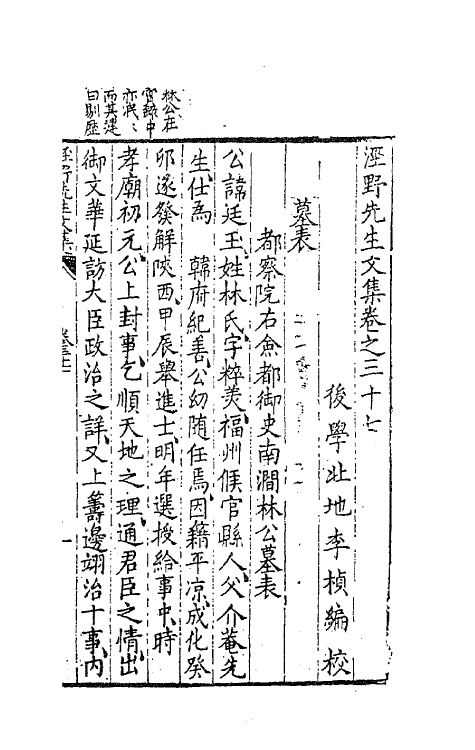 涇野先生文集卷之三十七
後學北地李楨編校
墓表
都察院右僉都御史南澗林公墓表
公諱廷玉姓林氏字粹美福州候官縣人父介菴先
生仕為 韓府紀善公幼随任焉因籍平凉成化癸
卯遂發解陜西甲辰舉進士明年選授給事中時
孝廟初元公上封事乞順天地之理通君臣之情出
御文華延訪大臣政治之詳又上籌邊翊治十事内
涇野先生文集
林公在
實録中
亦泯〻
而其建
白剴